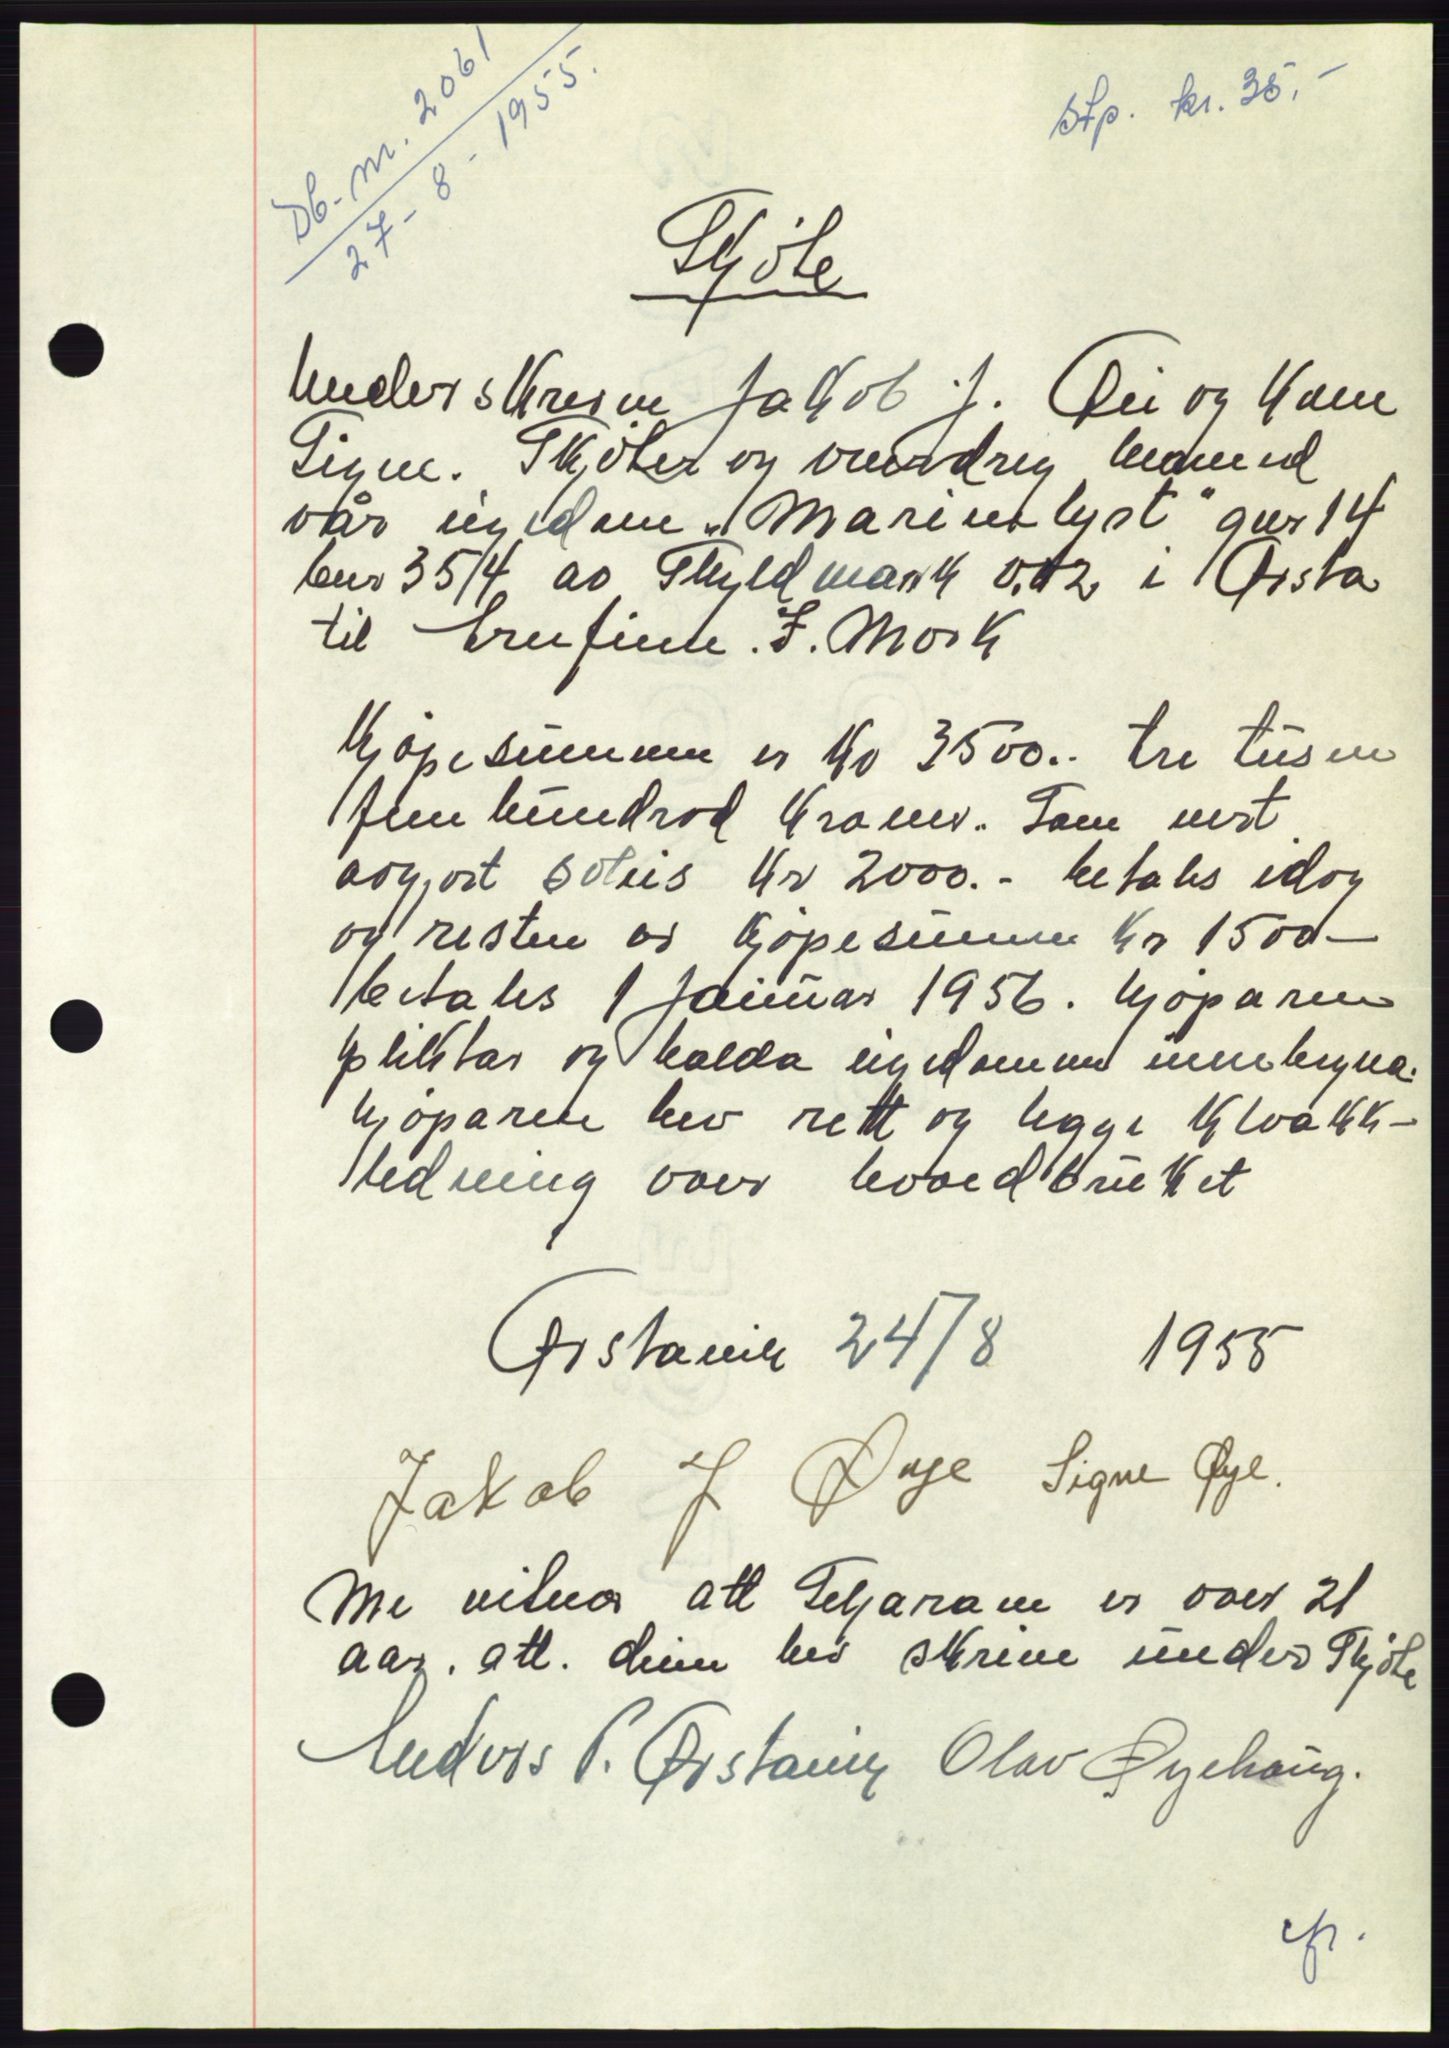 Db-nr. 2061
27-8-1955.
Stp. kr. 35.-
Skjöte
Underskrevne Jakob J. Øie og kone
Signe. Skjöter og overdreg hermed
vår eigedom "Marienlyst" gnr 14
bnr 35/4 av Skyldmark 0.12 i Ørsta
til fru Finn. J. Mork
Kjöpesummen er Kr 3500.- tre tusen
fem hundrod kroner. Som vert
avgjort soleis Kr 2000.- betales idag
og resten av kjöpesummen Kr 1500-
betales 1 Januar 1956. Kjöparen
pliktar og halda eigedomen innhegna.
Kjöparen hev rett og legge Kloakk-
ledning over hovedbruket
Ørstavik 24/8 1955
Jakob J Øye Signe Øye.
Me vitnar att Seljarane er over 21
aar. att. deim hev skrive under Skjöte
Anders P. Ørstavik Olav Øyehaug.